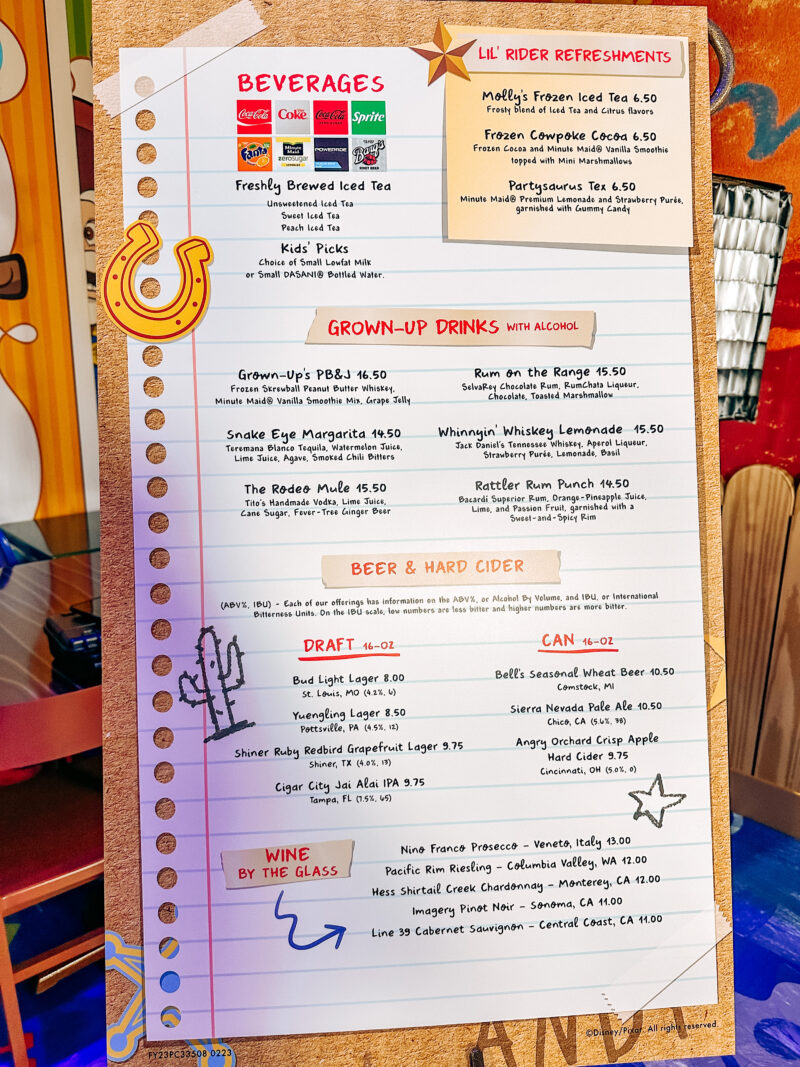 BEVERAGES
Coca-Cola
Diet Coke
Coca-Cola
Sprite
Fanta
Minute Maid
zerosugar
POWERADE
Barq's
ROOT BEER
Freshly Brewed Iced Tea
Unsweetened Iced Tea
Sweet Iced Tea
Peach Iced Tea
Kids' Picks
Choice of Small Lowfat Milk
or Small DASANI® Bottled Water.
LIL' RIDER REFRESHMENTS
Molly's Frozen Iced Tea 6.50
Frosty blend of Iced Tea and Citrus flavors
Frozen Cowpoke Cocoa 6.50
Frozen Cocoa and Minute Maid® Vanilla Smoothie
topped with Mini Marshmallows
Partysaurus Tex 6.50
Minute Maid® Premium Lemonade and Strawberry Purée,
garnished with Gummy Candy
GROWN-UP DRINKS WITH ALCOHOL
Grown-Up's PB&J 16.50
Frozen Skrewball Peanut Butter Whiskey,
Minute Maid® Vanilla Smoothie Mix, Grape Jelly
Snake Eye Margarita 14.50
Teremana Blanco Tequila, Watermelon Juice,
Lime Juice, Agave, Smoked Chili Bitters
The Rodeo Mule 15.50
Tito's Handmade Vodka, Lime Juice,
Cane Sugar, Fever-Tree Ginger Beer
Rum on the Range 15.50
SelvaRey Chocolate Rum, RumChata Liqueur,
Chocolate, Toasted Marshmallow
Whinnyin' Whiskey Lemonade 15.50
Jack Daniel's Tennessee Whiskey, Aperol Liqueur,
Strawberry Purée, Lemonade, Basil
Rattler Rum Punch 14.50
Bacardi Superior Rum, Orange-Pineapple Juice,
Lime, and Passion Fruit, garnished with a
Sweet-and-Spicy Rim
BEER & HARD CIDER
(ABV%, IBU) - Each of our offerings has information on the ABV%, or Alcohol By Volume, and IBU, or International
Bitterness Units. On the IBU scale, low numbers are less bitter and higher numbers are more bitter.
DRAFT 16-OZ
Bud Light Lager 8.00
St. Louis, MO (4.2%, 6)
Yuengling Lager 8.50
Pottsville, PA (4.5%, 12)
Shiner Ruby Redbird Grapefruit Lager 9.75
Shiner, TX (4.0%, 13)
Cigar City Jai Alai IPA 9.75
Tampa, FL (7.5%, 65)
CAN 16-OZ
Bell's Seasonal Wheat Beer 10.50
Comstock, MI
Sierra Nevada Pale Ale 10.50
Chico, CA (5.6%, 38)
Angry Orchard Crisp Apple
Hard Cider 9.75
Cincinnati, OH (5.0%, 0)
WINE
BY THE GLASS
Nino Franco Prosecco – Veneto, Italy 13.00
Pacific Rim Riesling – Columbia Valley, WA 12.00
Hess Shirtail Creek Chardonnay – Monterey, CA 12.00
Imagery Pinot Noir – Sonoma, CA 11.00
Line 39 Cabernet Sauvignon – Central Coast, CA 11.00
ANDY
©Disney/Pixar. All rights reserved.
FY23PC33508 0223